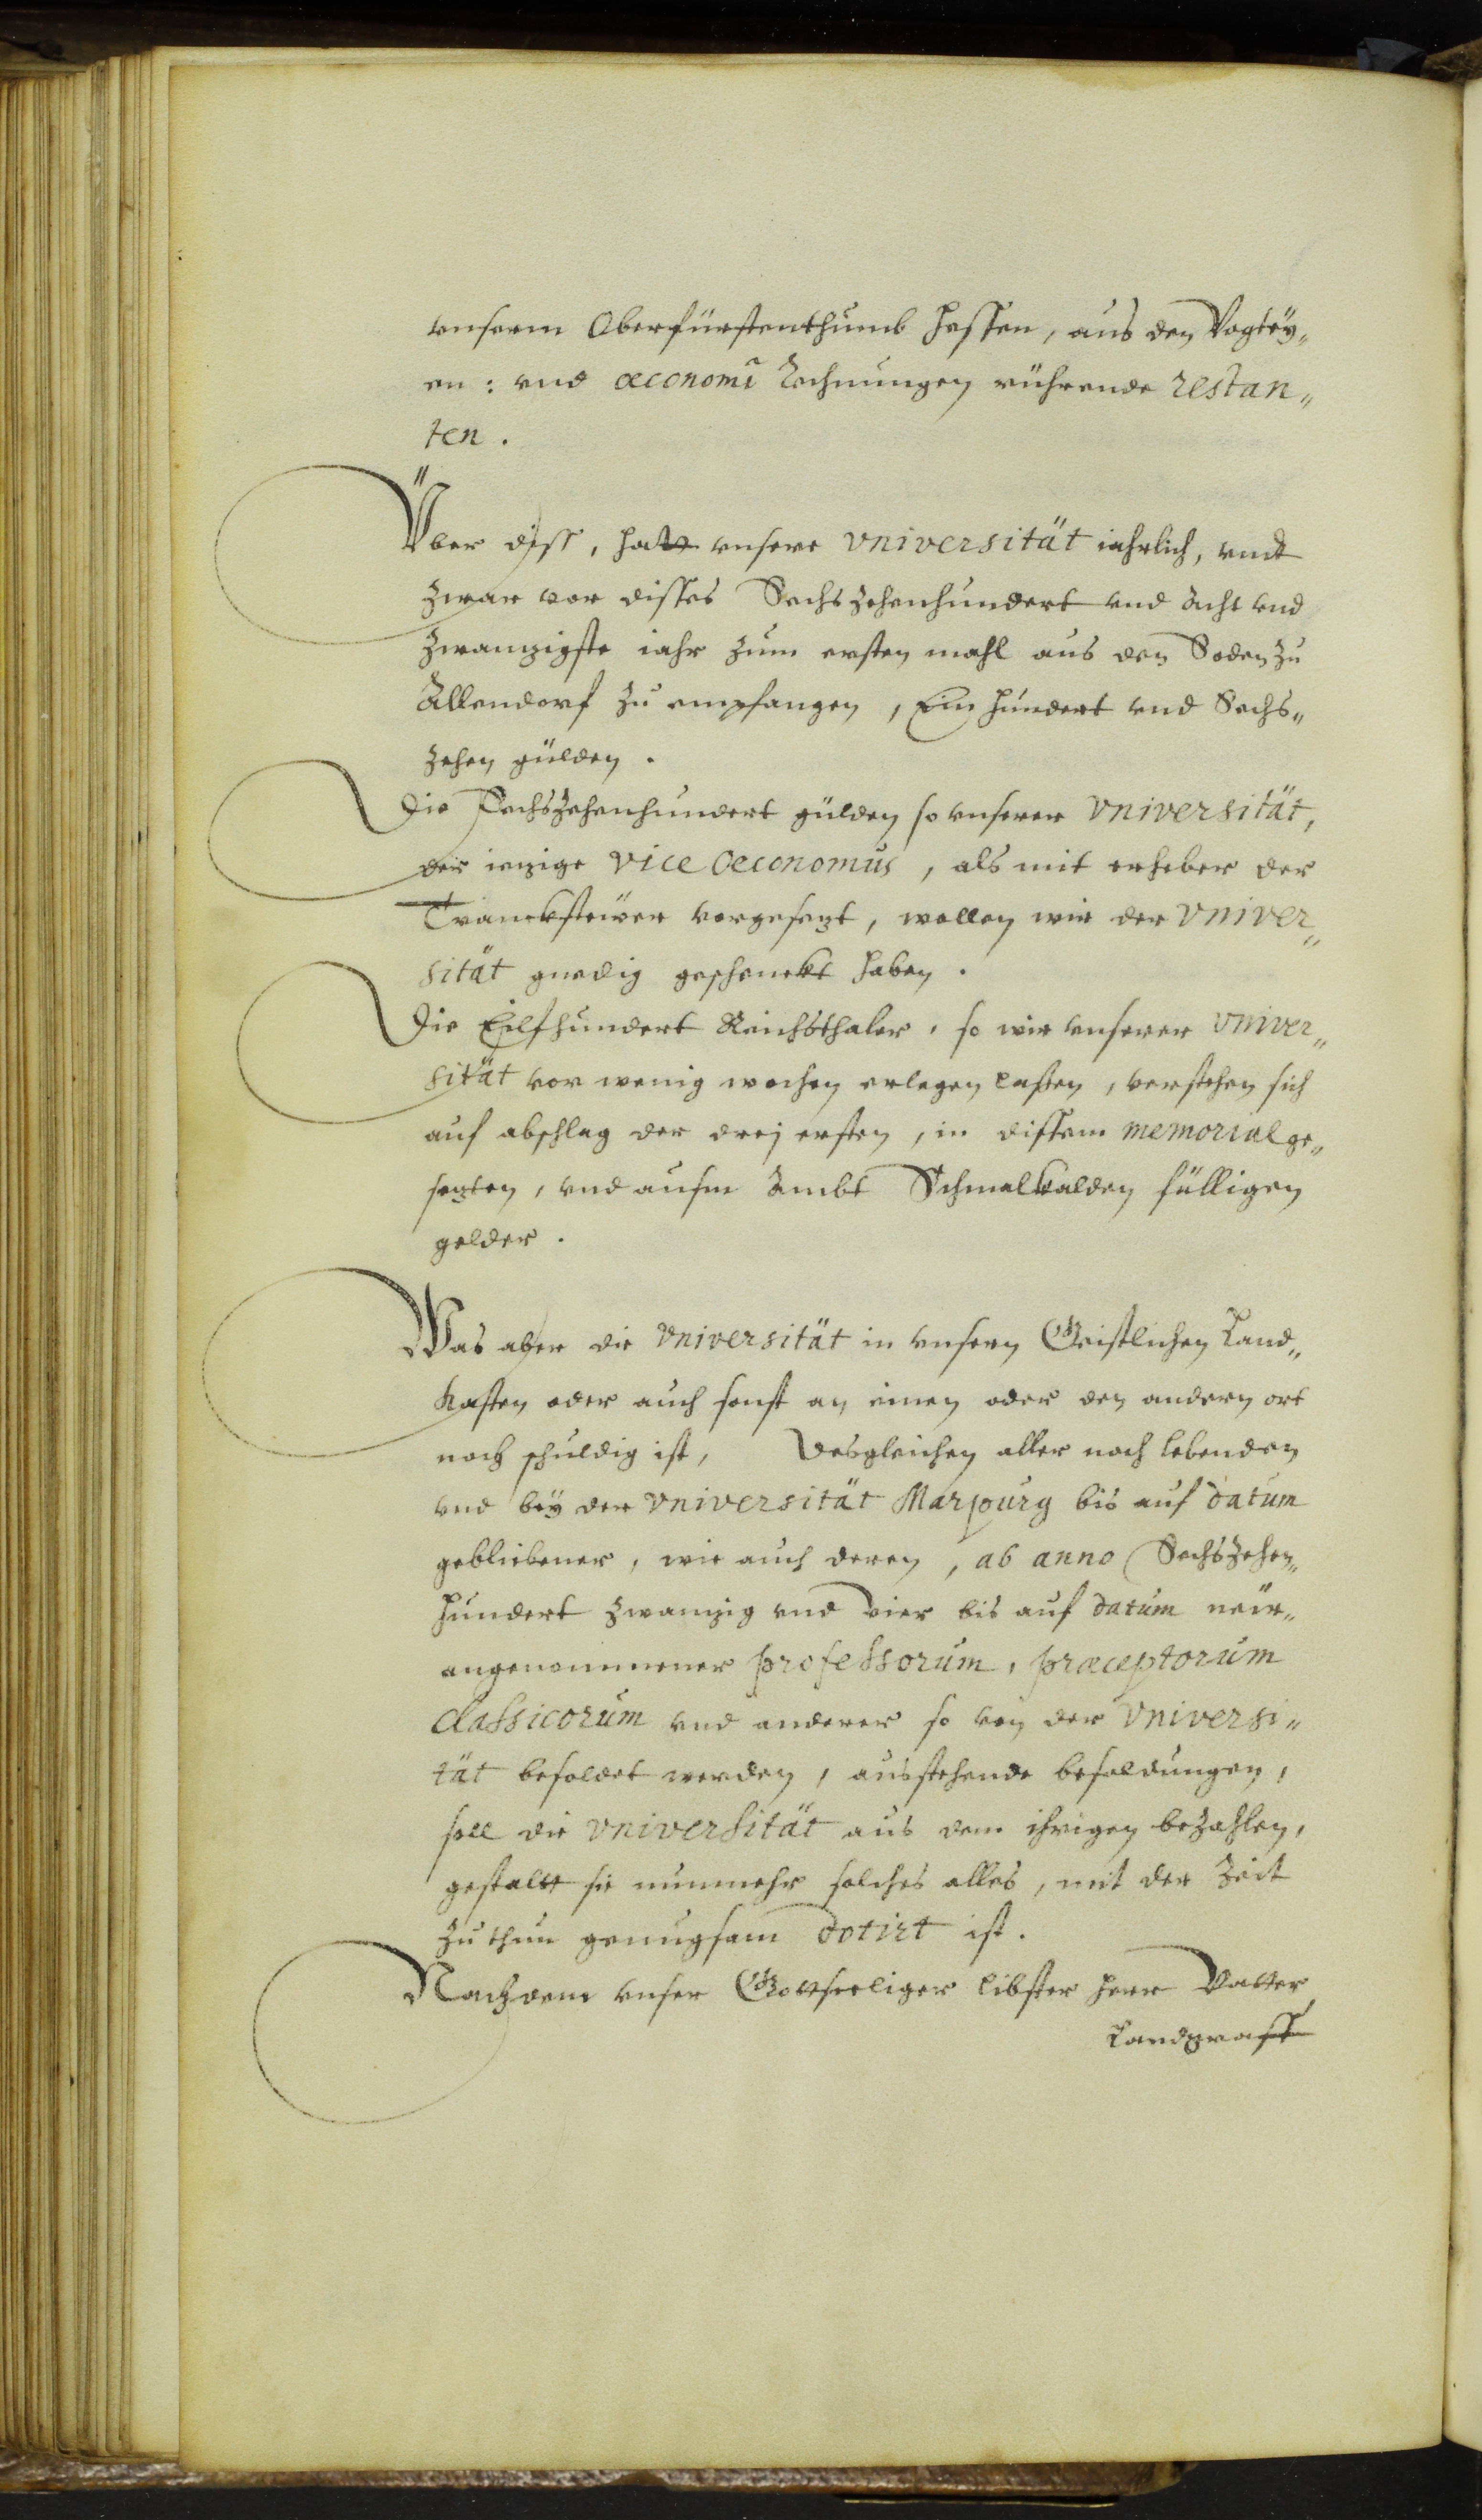 vnserm Oberfürstenthumb Hessen, aus den Vogtey„
en: vnd œconomi Rechnungen rührende restan„
ten.
Vber diss, hatt vnsere Vniversität iahrlich, vndt
zwar vor disses Sechszehenhundert vnd Acht vnd
zwanzigste iahr zum ersten mahl aus den Soden zu
Allendorf zu empfangen, Ein hundert vnd Sechs„
zehen gülden.
Die Sechszehenhundert gülden so vnserer Vniversität,
der ienzige Vice Oeconomus, als mit erheber der
Tranckstewer vorgesezt, wollen wir der Vniver„
sität gnedig geschenckt haben.
Die Eilfhundert Reichsthaler, so wir vnserer Vniver„
sität vor wenig wochen erlegen lassen, verstehen sich
auf abschlag der drej ersten, in dissem memorial ge„
sezten, vnd aufm Ambt Schmalkalden fälligen
gelder.
Was aber die Vniversität in vnsern Geistlichen Land„
kasten oder auch sonst an einen oder den andern ort
noch schuldig ist, Desgleichen aller noch lebenden
vnd bey der Vniversität Marpurg bis auf datum
gebliebener, wie auch deren, ab anno Sechszehen„
hundert zwanzig vnd vier bis auf datum new„
angenommener professorum, præceptorum
classicorum vnd anderer so von der Vniversi„
tät besoldet werden, ausstehende besoldungen,
soll die Vniversität aus dem ihrigen bezahlen,
gestallt sie nunmehr solches alles, mit der Zeit
zu thun genugsam dotirt ist.
Nachdem vnser Gottseeliger libster Herr Vatter
Landgraff